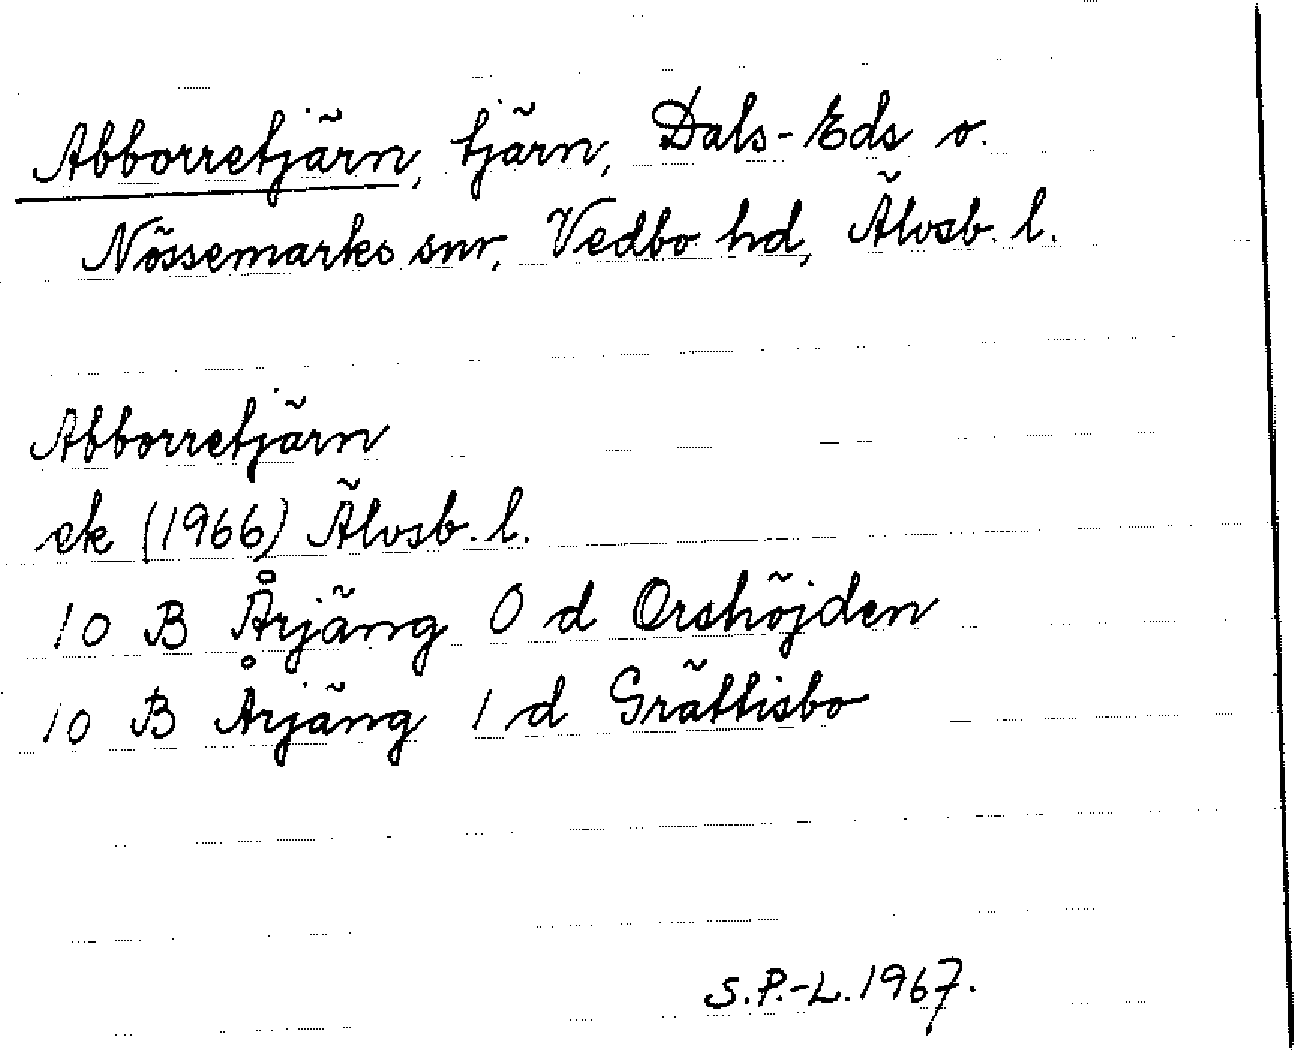 Abborretjärn, tjärn, Dals-Eds o.
Nössemarks snr, Vedbo hd, Älvsb. l.
Abborretjärn
ek (1966) Älvsb. l.
10 B Årjäng 0 d Orshöjden
10 B Årjäng 1 d Grättisbo
S.P.-L. 1967.